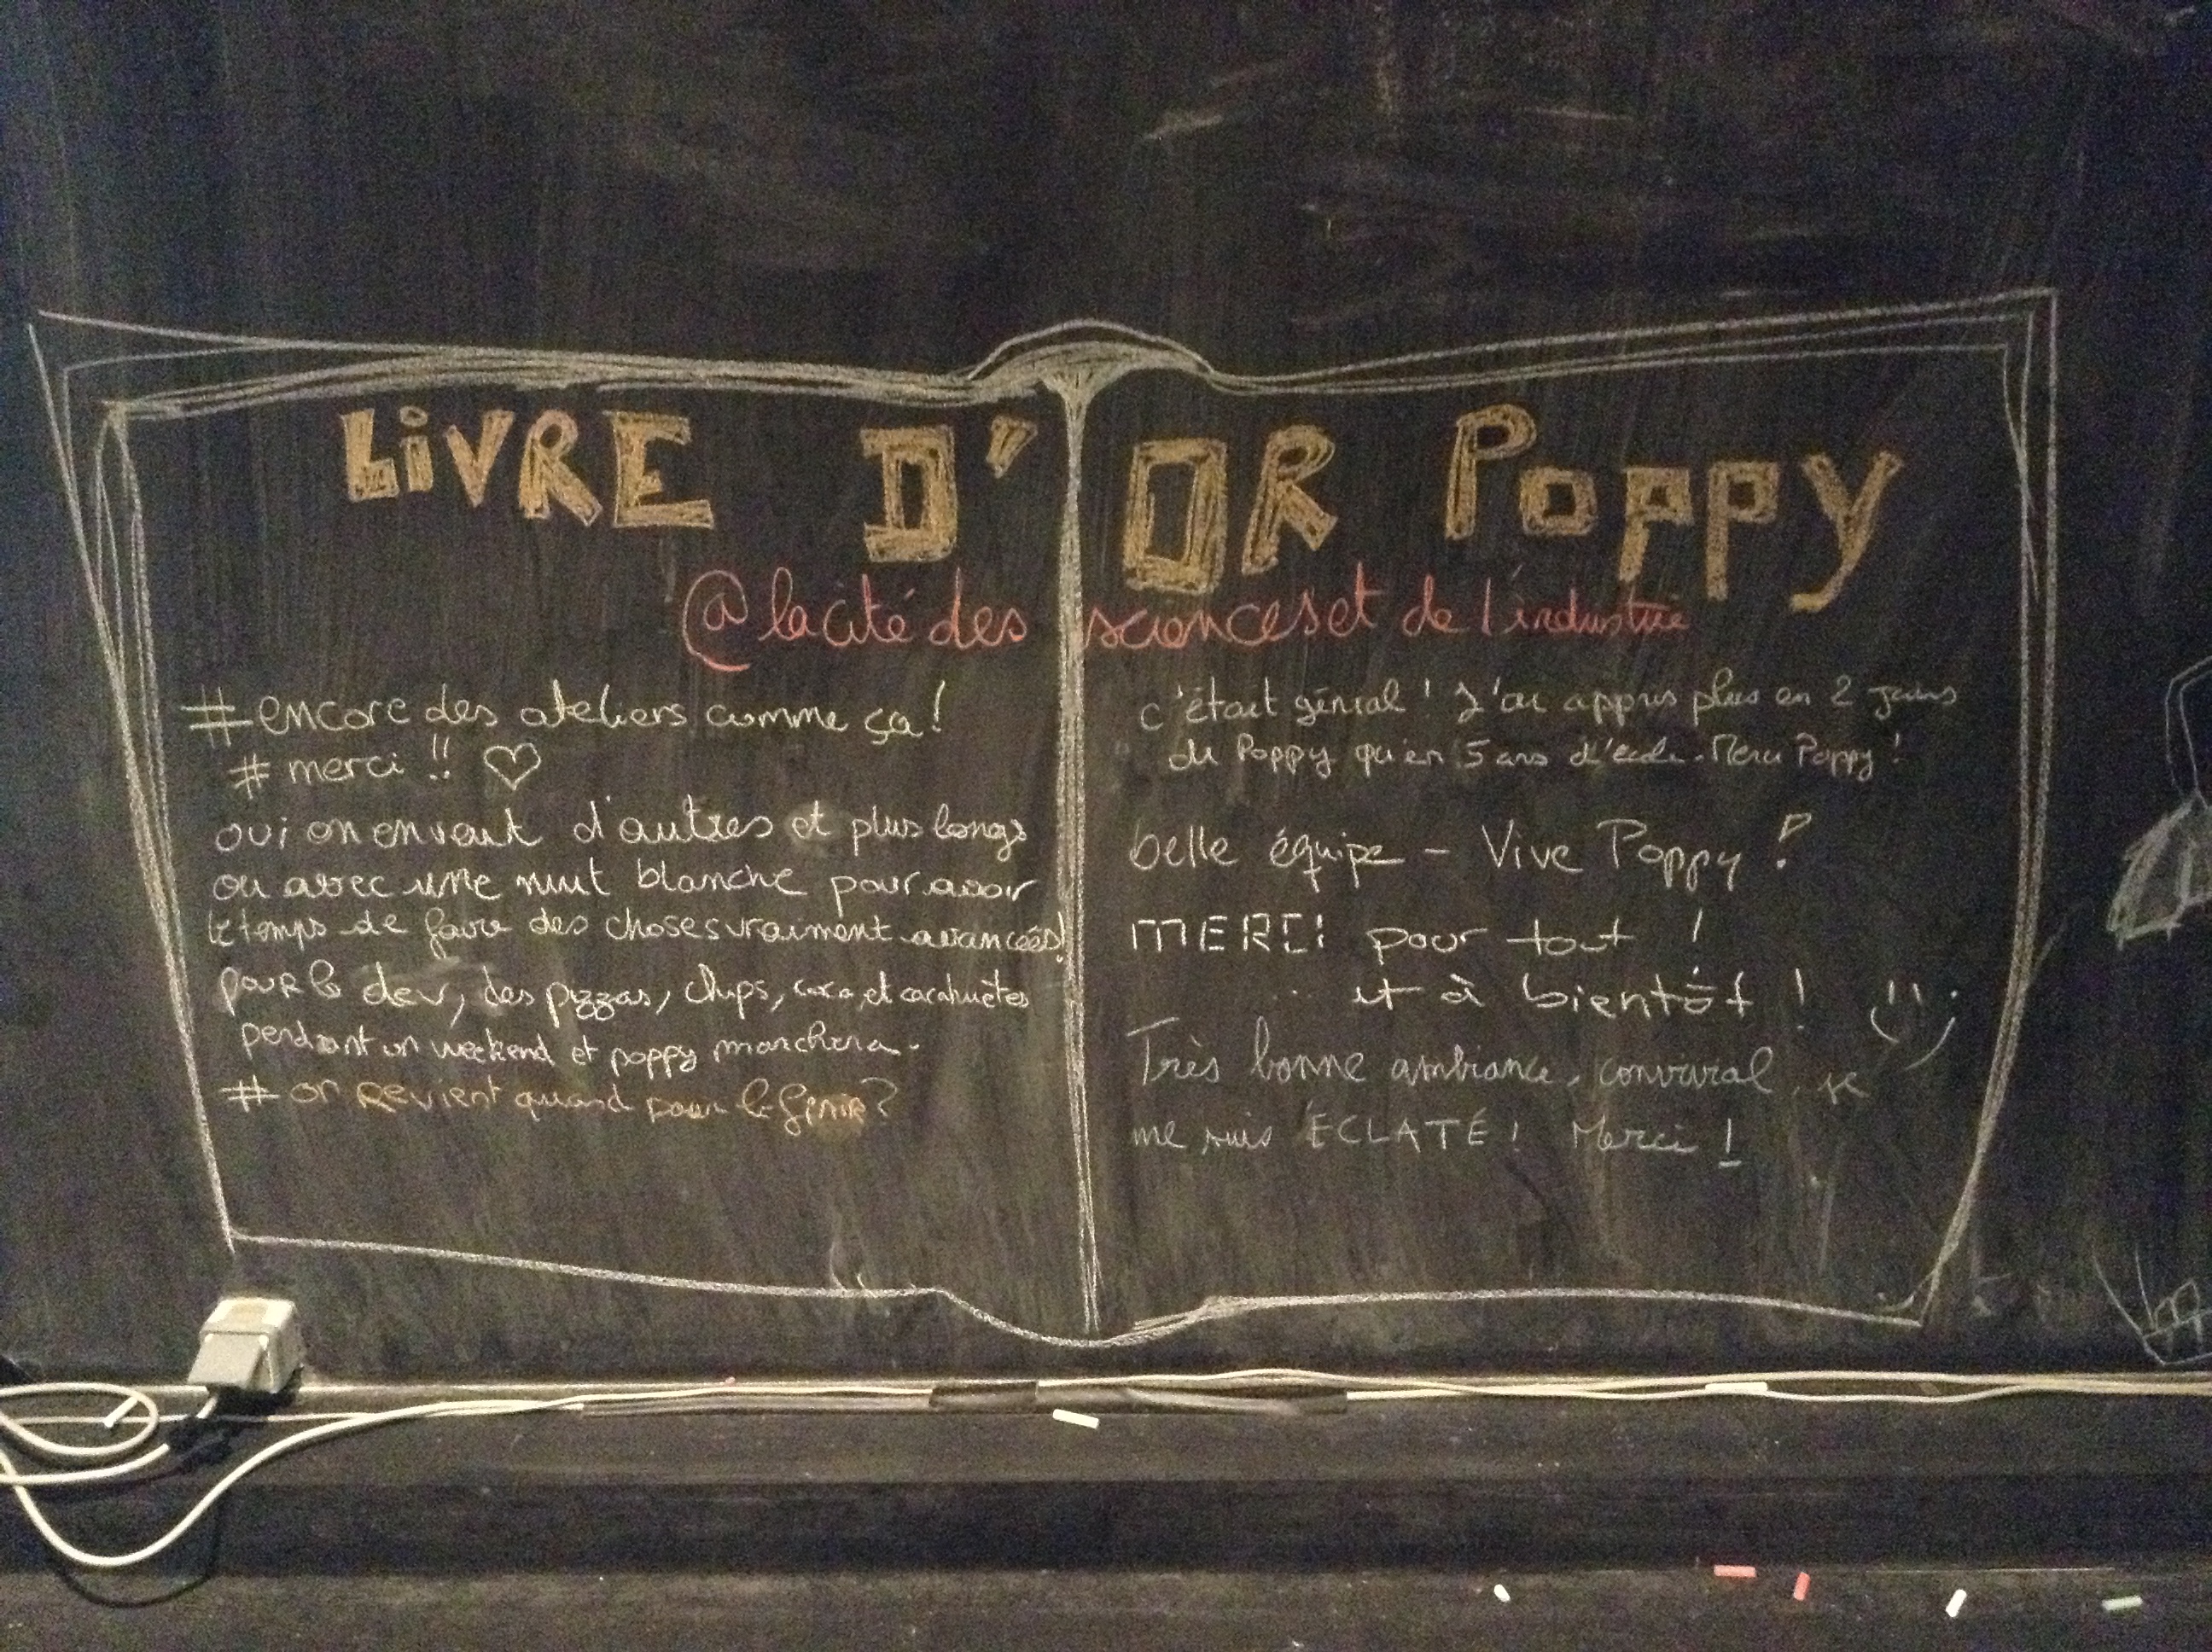 LiVRE D'OR POPPY
@ la cité des sciences et de l'industrie
#encore des ateliers comme ça!
# merci !! ♡
oui on en veut d'autres et plus longs
ou avec une nuit blanche pour avoir
le temps de faire des choses vraiment avancées!
pour le dev, des pizzas, chips, coca, et cacahuètes
pendant un weekend et poppy marchera.
# on revient quand pour le finir?
c'était génial ! J'ai appris plus en 2 jours
de Poppy qu'en 5 ans d'école. Merci Poppy !
belle équipe - Vive Poppy !
MERCI pour tout !
et à bientôt !
Très bonne ambiance, convivial, je
me suis ÉCLATÉ ! Merci !